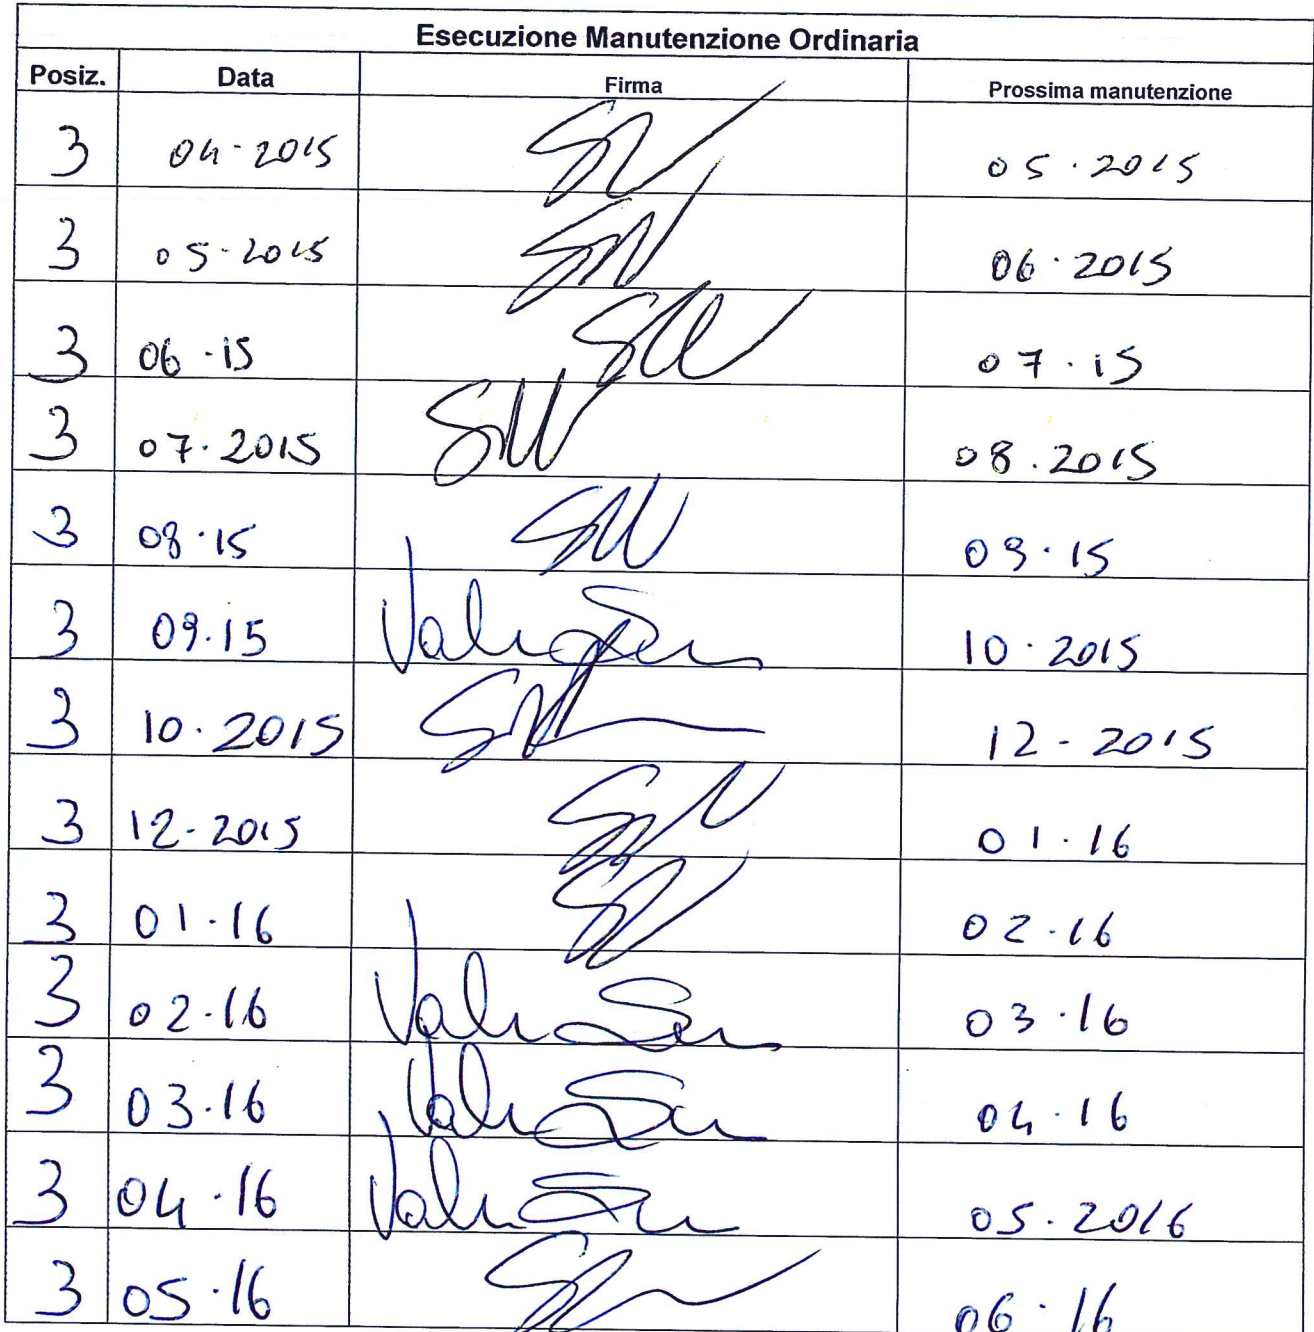 Esecuzione Manutenzione Ordinaria
Posiz. Data Firma Prossima manutenzione
3 04-2015 05.2015
3 05-2015 06.2015
3 06.15 07.15
3 07.2015 08.2015
3 08.15 09.15
3 09.15 10.2015
3 10.2015 12-2015
3 12-2015 01.16
3 01.16 02.16
3 02.16 03.16
3 03.16 04.16
3 04.16 05.2016
3 05.16 06.16